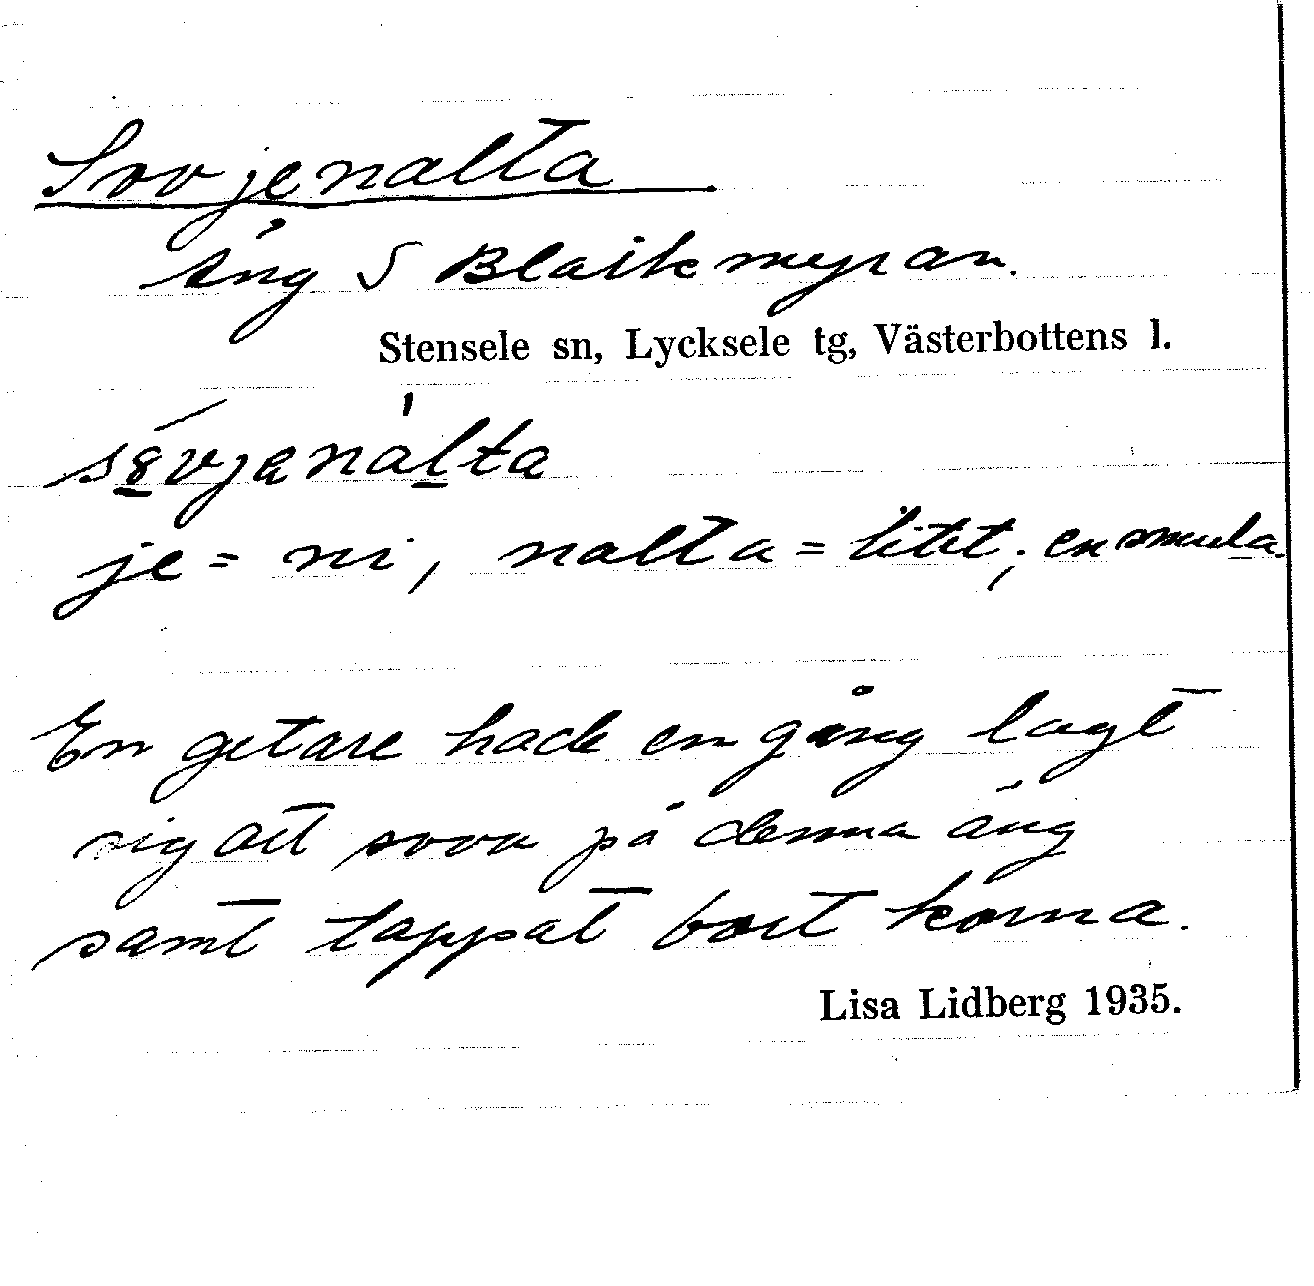 Sovjenalta
äng S Blaikmyran.
Stensele sn, Lycksele tg, Västerbottens l.
je = ni, nalta = litet; en smula.
En getare hade en gång lagt
sig att sova på denna äng
samt tappat bort korna.
Lisa Lidberg 1935.